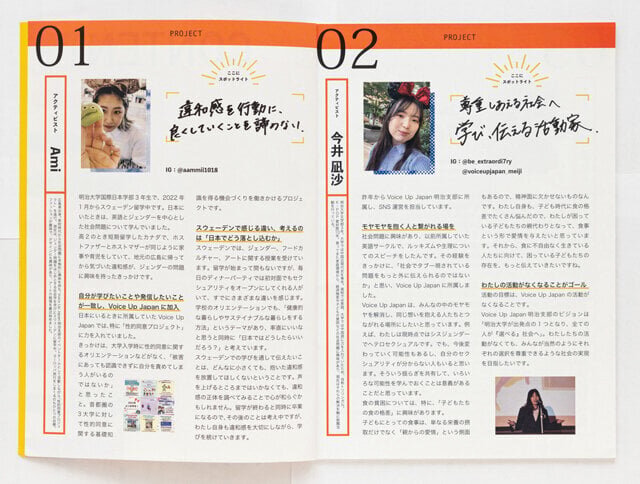 01
PROJECT
ここに
スポットライト
アクティビスト
Ami
違和感を行動に、
良くしていくことを諦めない。
IG：@aammii1018
明治大学国際日本学部3年生で、2022年
1月からスウェーデン留学中です。日本に
いたときは、英語とジェンダーを中心とし
た社会問題について学んでいました。
高2のとき短期留学したカナダで、ホス
トファザーとホストマザーが同じように家
事や育児をしていて、地元の広島に帰って
から気づいた違和感が、ジェンダーの問題
に興味を持ったきっかけです。
自分が学びたいことや発信したいこと
が一致し、Voice Up Japanに加入
日本にいるときに所属していたVoice Up
Japanでは、特に「性的同意プロジェクト」
に力を入れていました。
きっかけは、大学入学時に性的同意に関す
るオリエンテーションなどがなく、「被害に
あっても認識できずに自分を責めてしま
う人がいるの
ではないか」
と思ったこ
と。首都圏の
3大学に対し
て性的同意に
関する基礎知
識を得る機会づくりを働きかけるプロジェ
クトです。
スウェーデンで感じる違い、考えるの
は「日本でどう落とし込むか」。
スウェーデンでは、ジェンダー、フードカ
ルチャー、アートに関する授業を受けてい
ます。留学が始まって間もないですが、毎
日のディナーパーティでは初対面でもセク
シュアリティをオープンにしてくれる人が
いて、すでにさまざまな違いを感じます。
学校のオリエンテーションでも、「健康的
な暮らしやサステイナブルな暮らしをする
方法」というテーマがあり、率直にいいな
と思うと同時に「日本ではどうしたらいい
だろう？」と考えています。
スウェーデンでの学びを通して伝えたいこ
とは、どんなに小さくても、抱いた違和感
を放置してほしくないということです。声
を上げるところまではいかなくても、違和
感の正体を調べてみることで心が和らぐか
もしれません。留学が終わると同時に卒業
になるので、その後のことは考え中ですが、
わたし自身も違和感を大切にしながら、学
びを続けていきます。
02
PROJECT
ここに
スポットライト
アクティビスト
今井 凪沙
尊重しあえる社会へ
学び、伝える活動家。
IG：@be_extraordi7ry
@voiceupjapan_meiji
昨年からVoice Up Japan 明治支部に所
属し、SNS運営を担当しています。
モヤモヤを抱く人と繋がれる場を
社会問題に興味があり、以前所属していた
英語サークルで、ルッキズムや生理につい
てのスピーチをしたんです。その経験を
きっかけに、「社会でタブー視されている
問題をもっと外に伝えられるのではない
か」と思い、Voice Up Japanに所属し
ました。
Voice Up Japanは、みんなの中のモヤモ
ヤを解消し、同じ想いを抱える人たちとつ
ながれる場所にしたいと思っています。例
えば、わたしは現時点ではシスジェンダー
でヘテロセクシュアルです。でも、今後変
わっていく可能性もあるし、自分のセク
シュアリティが分からない人もいると思い
ます。そういう揺らぎを共有して、いろい
ろな可能性を学んでおくことは意義がある
ことだと思っています。
食の貧困については、特に、「子どもたち
の食の格差」に興味があります。
子どもにとっての食事は、単なる栄養の摂
取だけでなく「親からの愛情」という側面
もあるので、精神面に欠かせないものなん
です。わたし自身も、子ども時代に食の格
差でたくさん悩んだので、わたしが困って
いる子どもたちの親代わりとなって、食事
という形で愛情を与えたいと思っていま
す。それから、食に不自由なく生きている
人たちに向けて、困っている子どもたちの
存在を、もっと伝えていきたいですね。
わたしの活動がなくなることがゴール
活動の目標は、Voice Up Japanの活動が
なくなることです。
Voice Up Japan 明治支部のビジョンは
「明治大学が出発点の1つとなり、全ての
人が『選べる』社会へ」。わたしたちの活
動がなくても、みんなが当然のようにそれ
ぞれの選択を尊重できるような社会の実現
を目指したいです。